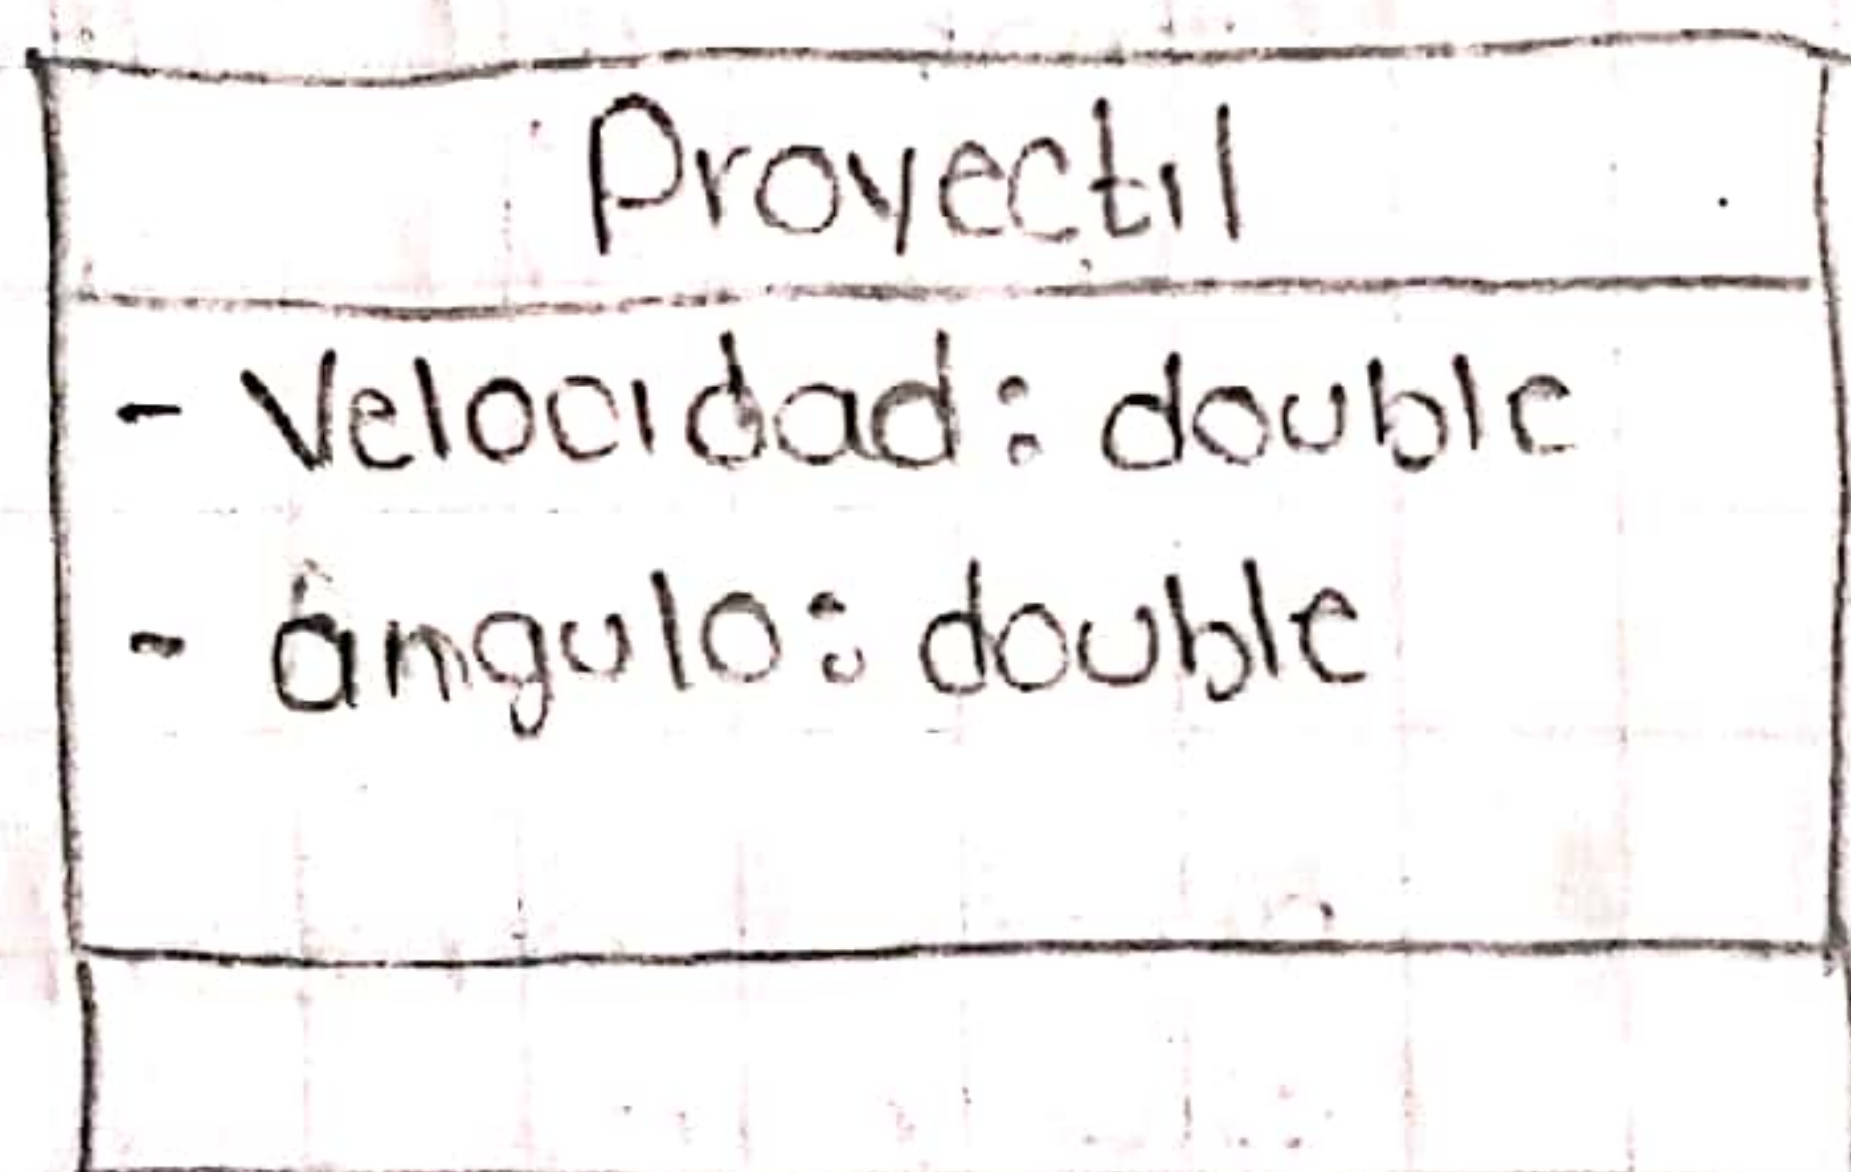 Proyectil
- Velocidad: double
- ángulo: double